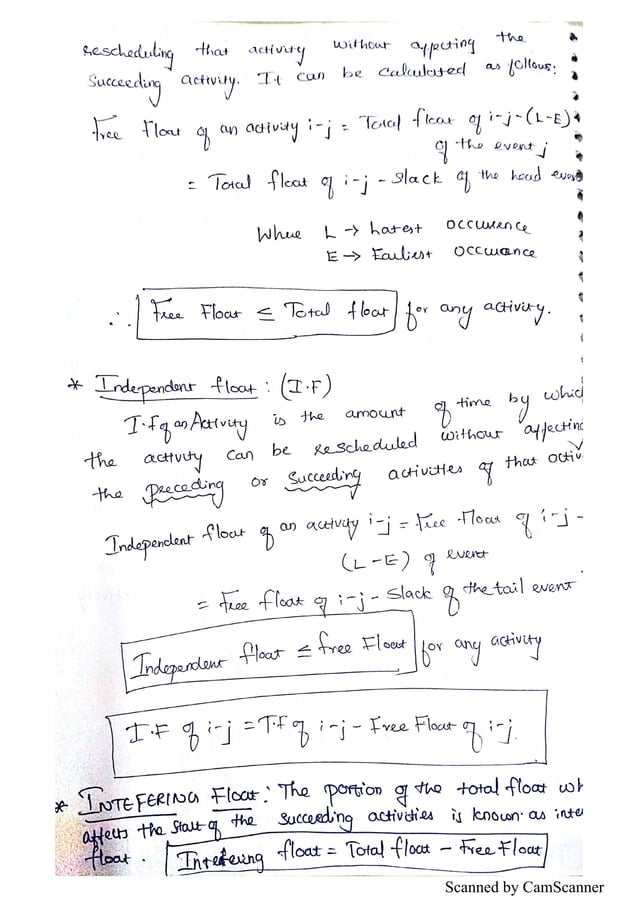 rescheduling that activity without affecting the
succeeding activity. It can be calculated as follows:
Free Float of an activity i-j = Total float of i-j-(L-E)
of the event j
= Total float of i-j - Slack of the head even
Where L → Latest occurence
E → Earliest occurance
∴ Free Float ≤ Total float for any activity.
* Independent float : (I.F)
I.F of an Activity is the amount of time by whic
the activity can be rescheduled without affecting
the preceding or succeeding activities of that activ
Independent float of an activity i-j = Free Float of i-j -
(L-E) of event
= Free float of i-j - Slack of the tail event
Independent float ≤ free Float for any activity
I.F of i-j = T.f of i-j - Free Float of i-j.
* INTEFERING Float : The portion of the total float wh
affects the start of the succeeding activities is known as inte
float. Intefering float = Total float - Free Float
Scanned by CamScanner